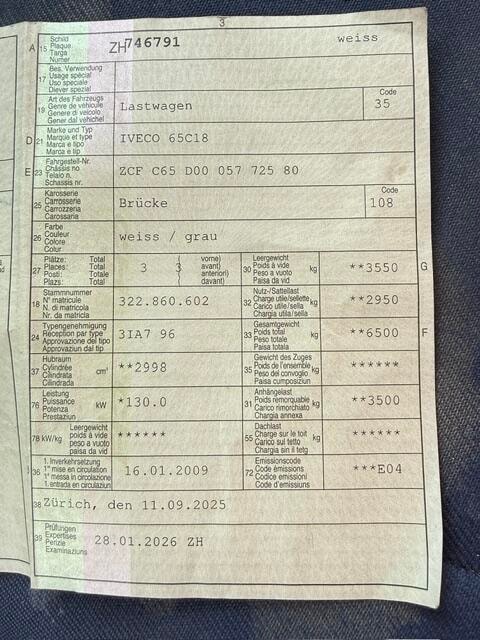 3
A 15 Schild
Plaque
Targa
Numer
ZH746791 weiss
17 Bes. Verwendung
Usage spécial
Uso speciale
Diever spezial
19 Art des Fahrzeugs
Genre de véhicule
Genere di veicolo
Gener dal vehichel
Lastwagen
Code
35
D 21 Marke und Typ
Marque et type
Marca e tipo
Marca e tip
IVECO 65C18
E 23 Fahrgestell-Nr.
Châssis no
Telaio n.
Schassis nr.
ZCF C65 D00 057 725 80
25 Karosserie
Carrosserie
Carrozzeria
Carossaria
Brücke
Code
108
26 Farbe
Couleur
Colore
Colur
weiss / grau
27 Plätze: Total (vorne)
Places: Total avant)
Posti: Totale anteriori)
Plazs: Total davant)
3 3
30 Leergewicht
Poids à vide
Peso a vuoto
Paisa da vid
kg **3550 G
18 Stammnummer
N° matricule
N. di matricola
Nr. da matricla
322.860.602
32 Nutz-/Sattellast
Charge utile/sellette
Carico utile/sella
Chargia utila/sella
kg **2950
24 Typengenehmigung
Réception par type
Approvazione del tipo
Approvaziun dal tip
3IA7 96
33 Gesamtgewicht
Poids total
Peso totale
Paisa totala
kg **6500 F
37 Hubraum
Cylindrée
Cilindrata
Cilindrada
cm³ **2998
35 Gewicht des Zuges
Poids de l'ensemble
Peso del convoglio
Paisa cumposiziun
kg ******
76 Leistung
Puissance
Potenza
Prestaziun
kW *130.0
31 Anhängelast
Poids remorquable
Carico rimorchiato
Chargia annexa
kg **3500
78 kW/kg Leergewicht
poids à vide
peso a vuoto
paisa da vid
******
55 Dachlast
Charge sur le toit
Carico sul tetto
Chargia sin il tetg
kg ******
36 1. Inverkehrsetzung
1re mise en circulation
1a messa in circolazione
1. entrada en circulaziun
16.01.2009
72 Emissionscode
Code émissions
Codice emissioni
Code d'emissiuns
***E04
38 Zürich, den 11.09.2025
39 Prüfungen
Expertises
Perizie
Examinaziuns
28.01.2026 ZH